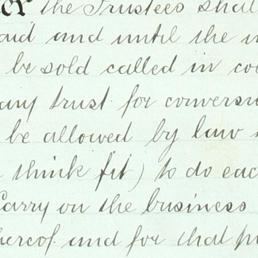 the Trustees shall
and until the
be sold called in
any trust for
be allowed by law
think fit) to do
Carry on the business
hereof and for that